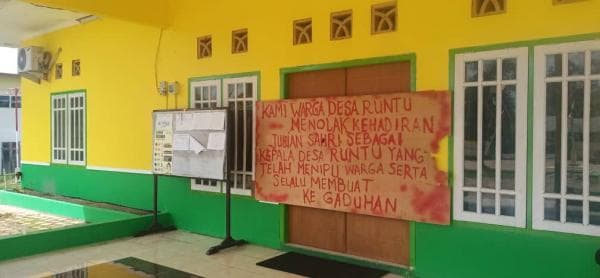 KAMI WARGA DESA RUNTU
MENOLAK KEHADIRAN
SEBAGAI
KEPALA DESA RUNTU YANG
TELAH MENIPU WARGA SERTA
SELALU MEMBUAT
KE GADUHAN